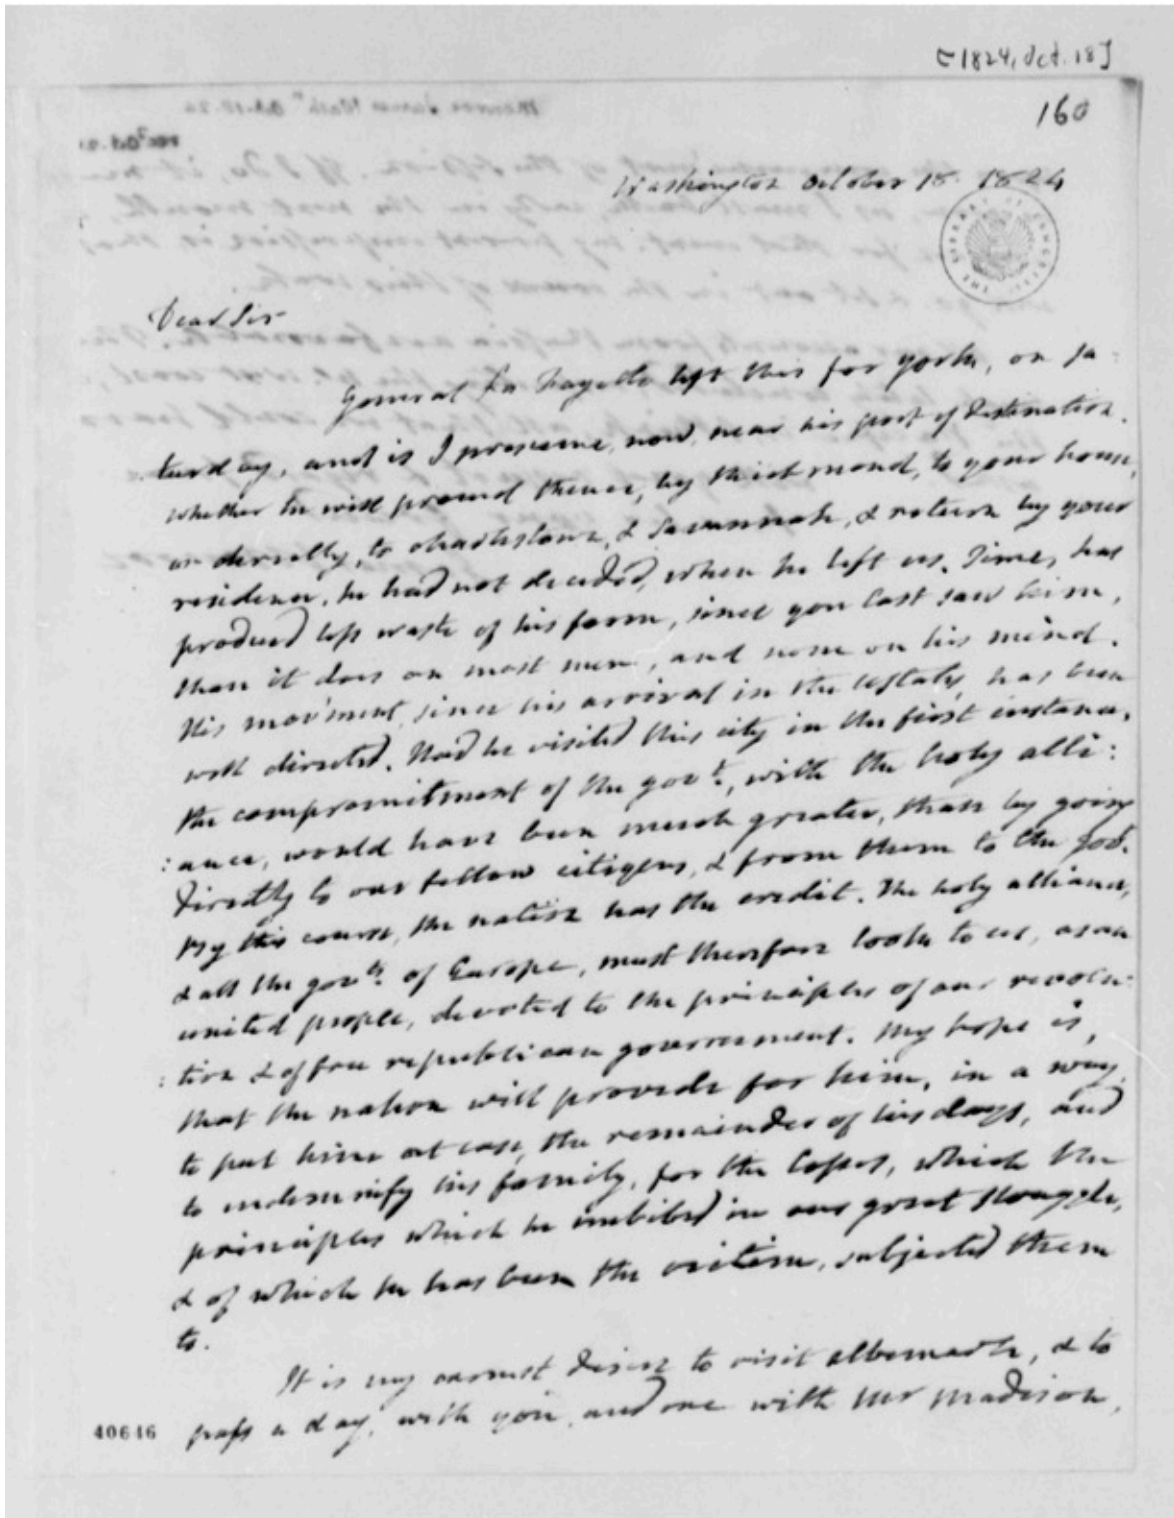 [1824, Oct. 18]
160
Washington October 18. 1824
THE LIBRARY OF CONGRESS
Dear Sir
General La Fayette left this for york, on sa:
turday, and is I presume, now, near his port of destination.
whether he will proceed thence, by Richmond, to your house,
or directly, to charlestown, & Savannah, & return by your
residence, he had not decided, when he left us. Time, has
produc'd less waste of his form, since you last saw him,
than it does on most men, and none on his mind.
His mov'ment, since his arrival in the UStates, has been
well directed. Had he visited this city in the first instance,
the compromitment of the govt., with the holy alli:
:ance, would have been much greater, than by going
directly to our fellow citizens, & from them to the govt.
By this course, the nation has the credit. The holy alliance,
& all the govts. of Europe, must therefore look to us, as an
united people, devoted to the principles of our revolu:
:tion & of free republican government. My hope is,
that the nation will provide for him, in a way,
to put him at ease, the remainder of his days, and
to indemnify his family, for the losses, which the
principles which he imbibed in our great struggle,
& of which he has been the victim, subjected them
to.
It is my earnest desire to visit albemarle, & to
pass a day, with you, and one with Mr Madison,
40646